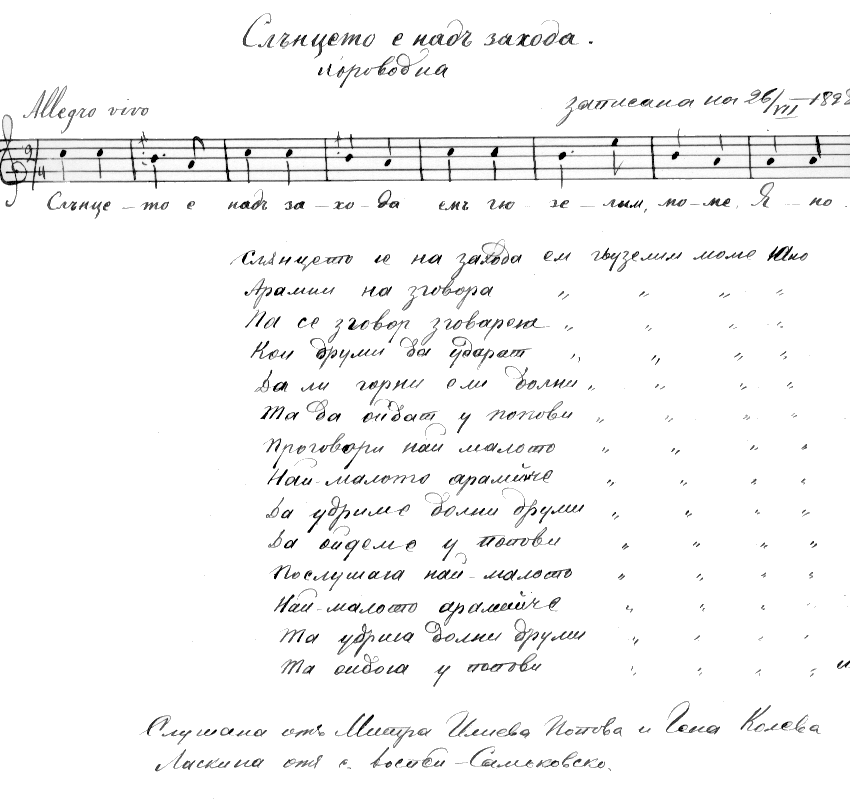 Слънцето е надъ захода.
Хороводна
Allegro vivo
записана на 26/VII 1898
9/4
Слънце – то е надъ за – хо – да емъ гю – зе – лым, мо – ме, Я – но.
Слянцето ıе на захода ем гьузелим моме Яно
Арамии на зговора „ „ „ „
Па се зговор зговареıа „ „ „ „
Кои друми да ударат „ „ „ „
Да ли горни ели долни „ „ „ „
Та да оидат у попови „ „ „ „
Проговори най малото „ „ „ „
Най-малото арамийче „ „ „ „
Да удриме долни друми „ „ „ „
Да ойдеме у попови „ „ „ „
Послушаıа най-малото „ „ „ „
Най-малото арамийче „ „ „ „
Та удриıа долни друми „ „ „ „
Та оидоıа у попови „ „ „ „
Слушана отъ Митра Илиева Попова и Гена Колева
Ласкина отъ с. – Самоковско.